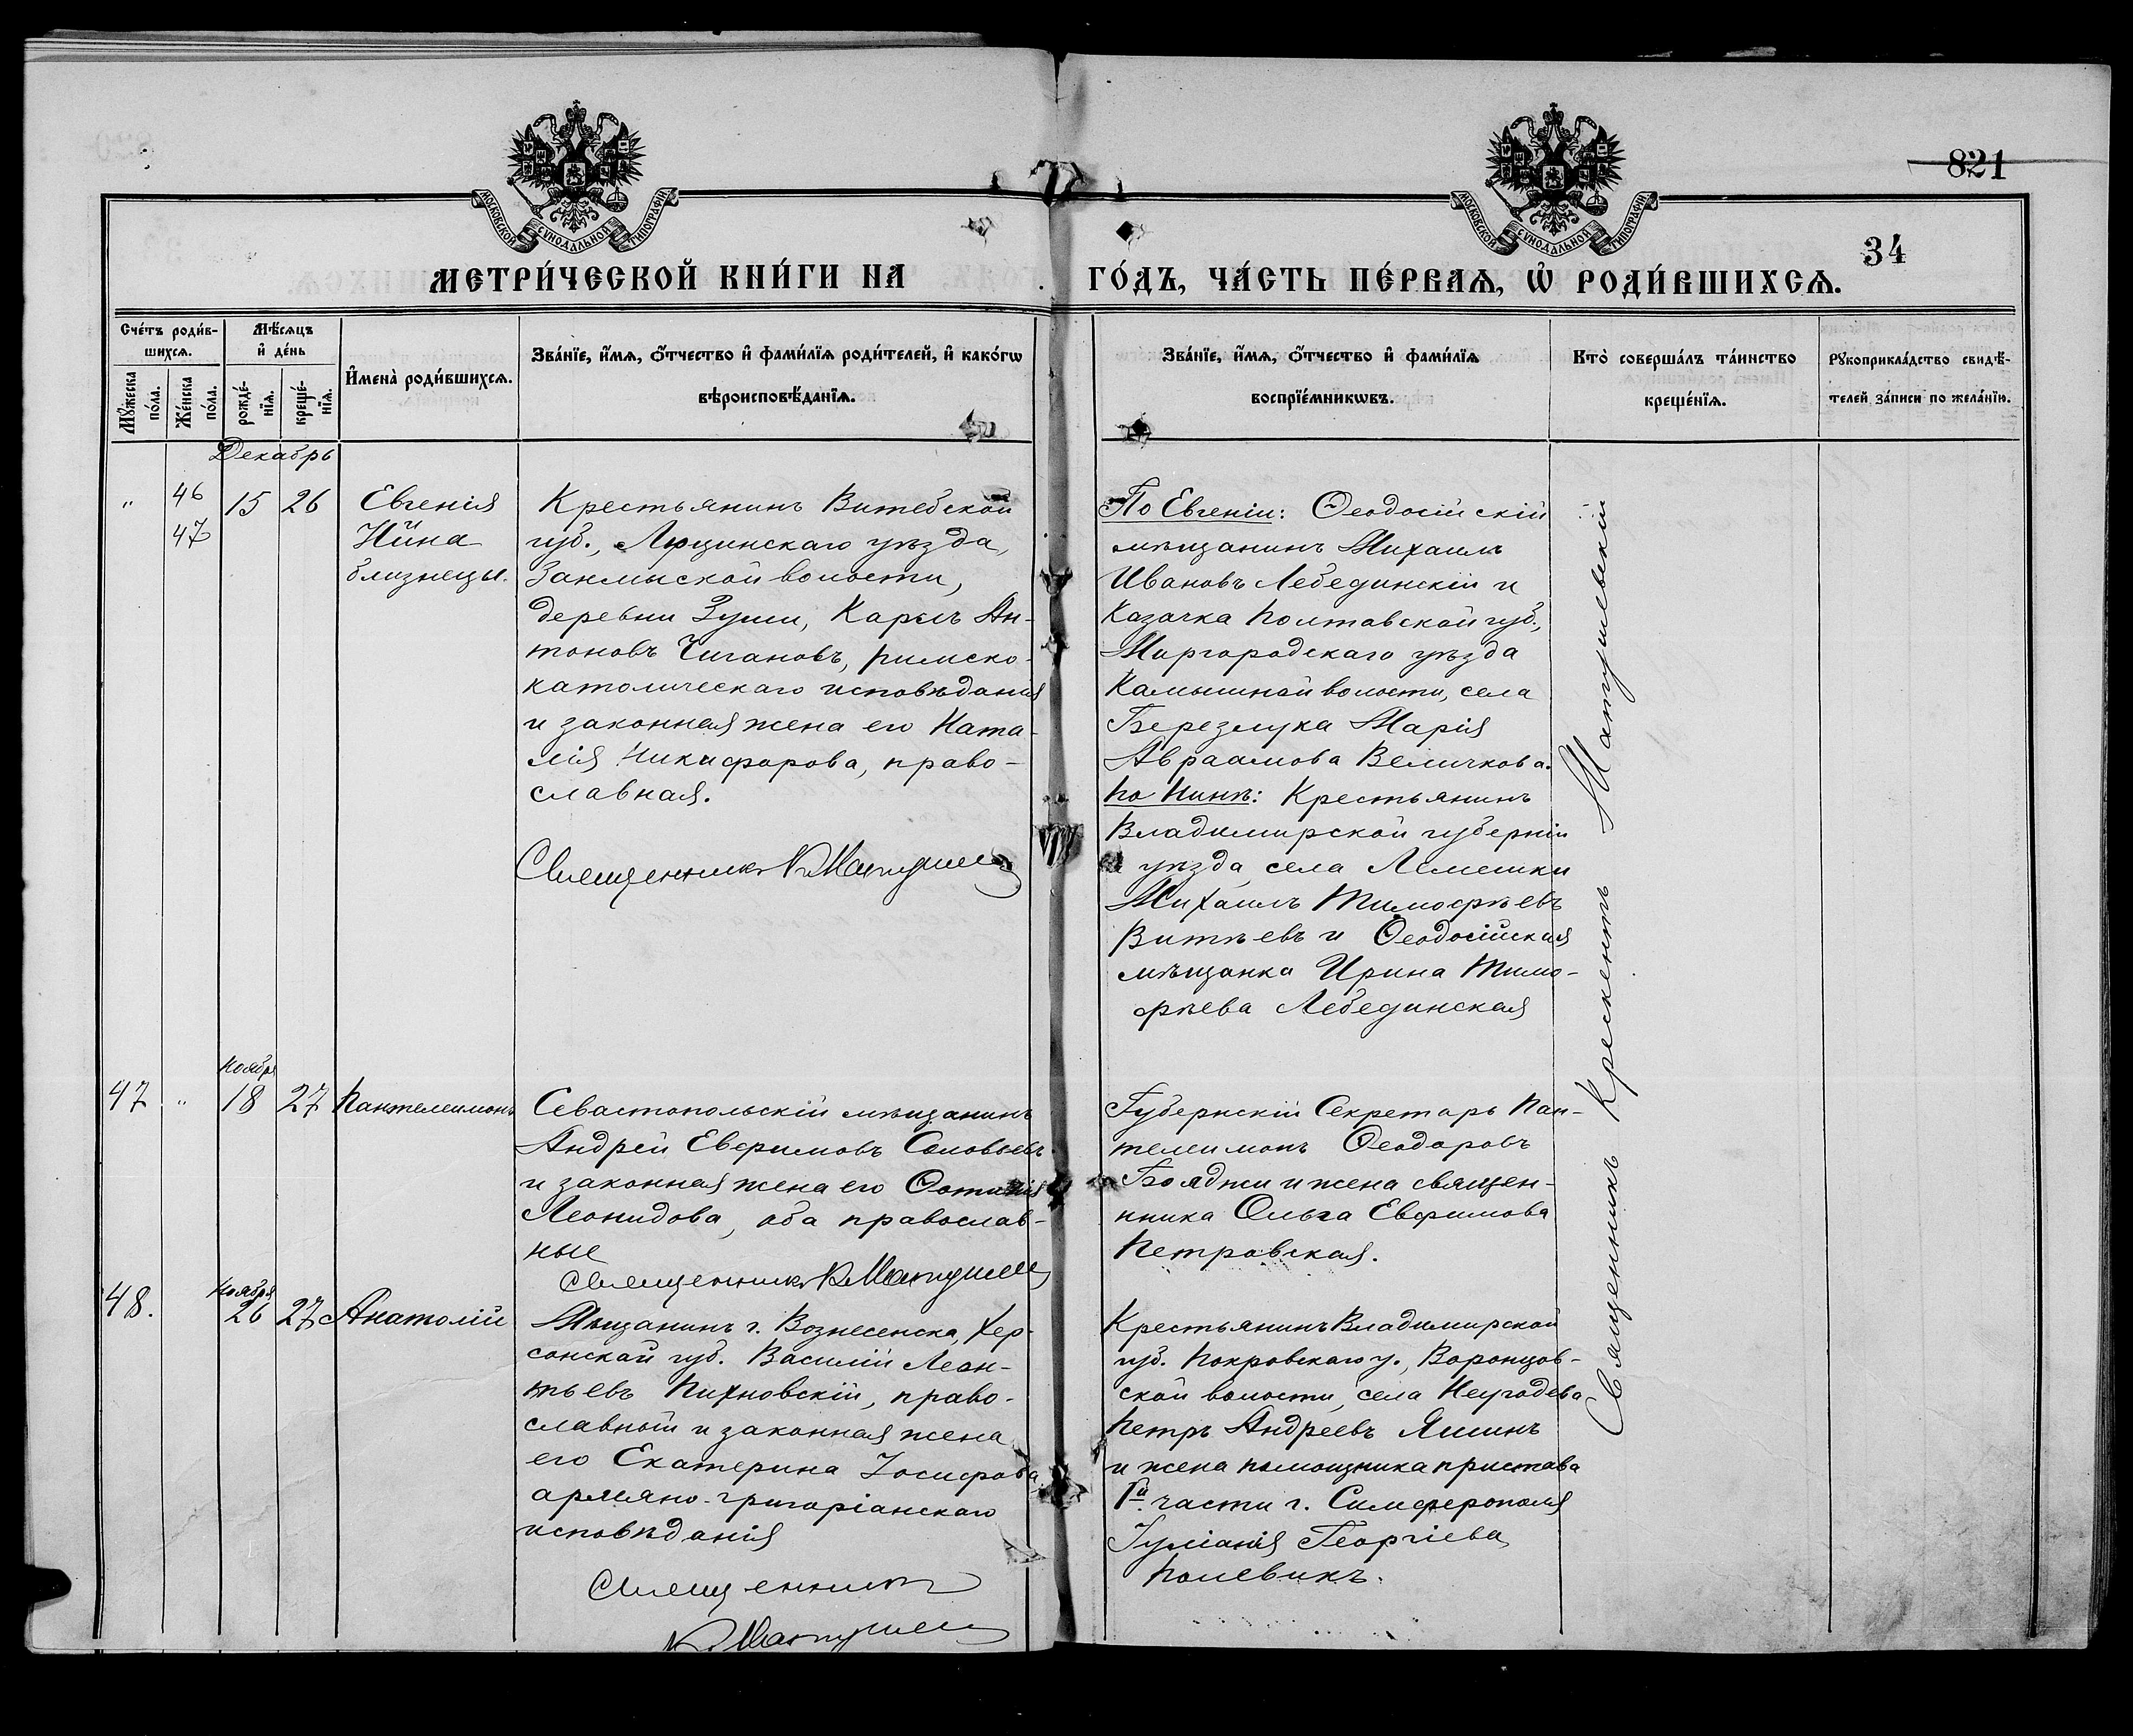 821
34
МОСКОВСКОЙ СѴНОДАЛЬНОЙ ТИПОГРАФІИ
МОСКОВСКОЙ СѴНОДАЛЬНОЙ ТИПОГРАФІИ
МЕТРИ́ЧЕСКОЙ КНИ́ГИ НА
ГО́ДЪ, ЧА́СТЬ ПЕ́РВАѦ, Ѽ РОДИ́ВШИХСѦ.
Сче́тъ роди́в-
шихсѧ.
Мꙋ́жеска
по́ла.
Же́нска
по́ла.
Мѣ́сѧцъ
и҆ де́нь
рожде́-
нїѧ.
креще́-
нїѧ.
И҆мена̀ роди́вшихсѧ.
Зва́нїе, и҆́мѧ, ѻ҆́тчество и҆ фами́лїѧ роди́телей, и҆ како́гѡ
вѣроисповѣ́данїѧ.
Зва́нїе, и҆́мѧ, ѻ҆́тчество и҆ фами́лїѧ
воспрїе́мникѡвъ.
Кто̀ соверша́лъ та́инство
креще́нїѧ.
Рꙋкоприкла́дство свидѣ́-
телей за́писи по жела́нїю.
Декабрь
" 46 15 26 Евгенія
47 Нина
близнецы.
Крестьянинъ Витебской
губ., Люцинскаго уѣзда,
волости,
деревни Карлъ Ан-
тоновъ Чигановъ, римско-
католическаго исповѣданія
и законная жена его Ната-
лія Никифорова, право-
славная.
Священникъ К. Матушев
По Евгеніи: Ѳеодосійскій
мѣщанинъ Михаилъ
Ивановъ Лебединскій и
Казачка Полтавской губ.,
Миргородскаго уѣзда
волости, села
Марія
Авраамова Величкова.
По Нинѣ: Крестьянинъ
Владимирской губерніи
уѣзда, села Лемешки
Михаилъ Тимофѣевъ
Витѣевъ и Ѳеодосійская
мѣщанка Ирина Тимо-
фѣева Лебединская
Ноября
47 " 18 27 Пантелеимонъ
Севастопольскій мѣщанинъ
Андрей Евфимовъ Соловьевъ
и законная жена его
Леонидова, оба православ-
ные
Священникъ К. Матушев
Губернскій Секретарь Пан-
телеимонъ Ѳеодоровъ
Бояджи и жена священ-
ника Ольга Евфимова
Петровская.
Ноября
48. 26 27 Анатолій
Мѣщанинъ г. Вознесенска, Хер-
сонской губ. Василій Леон-
тьевъ Пихновскій, право-
славный и законная жена
его Екатерина Іосифова
армяно-григоріанскаго
исповѣданія
Священникъ
К. Матушев
Крестьянинъ Владимирской
губ. Покровскаго у., Воронцов-
ской волости, села
Петръ Андреевъ Яшинъ
и жена помощника пристава
1й части г. Симферополя
Іуліанія Георгіева
Полевикъ.
Священникъ Крискентъ Матушевскій